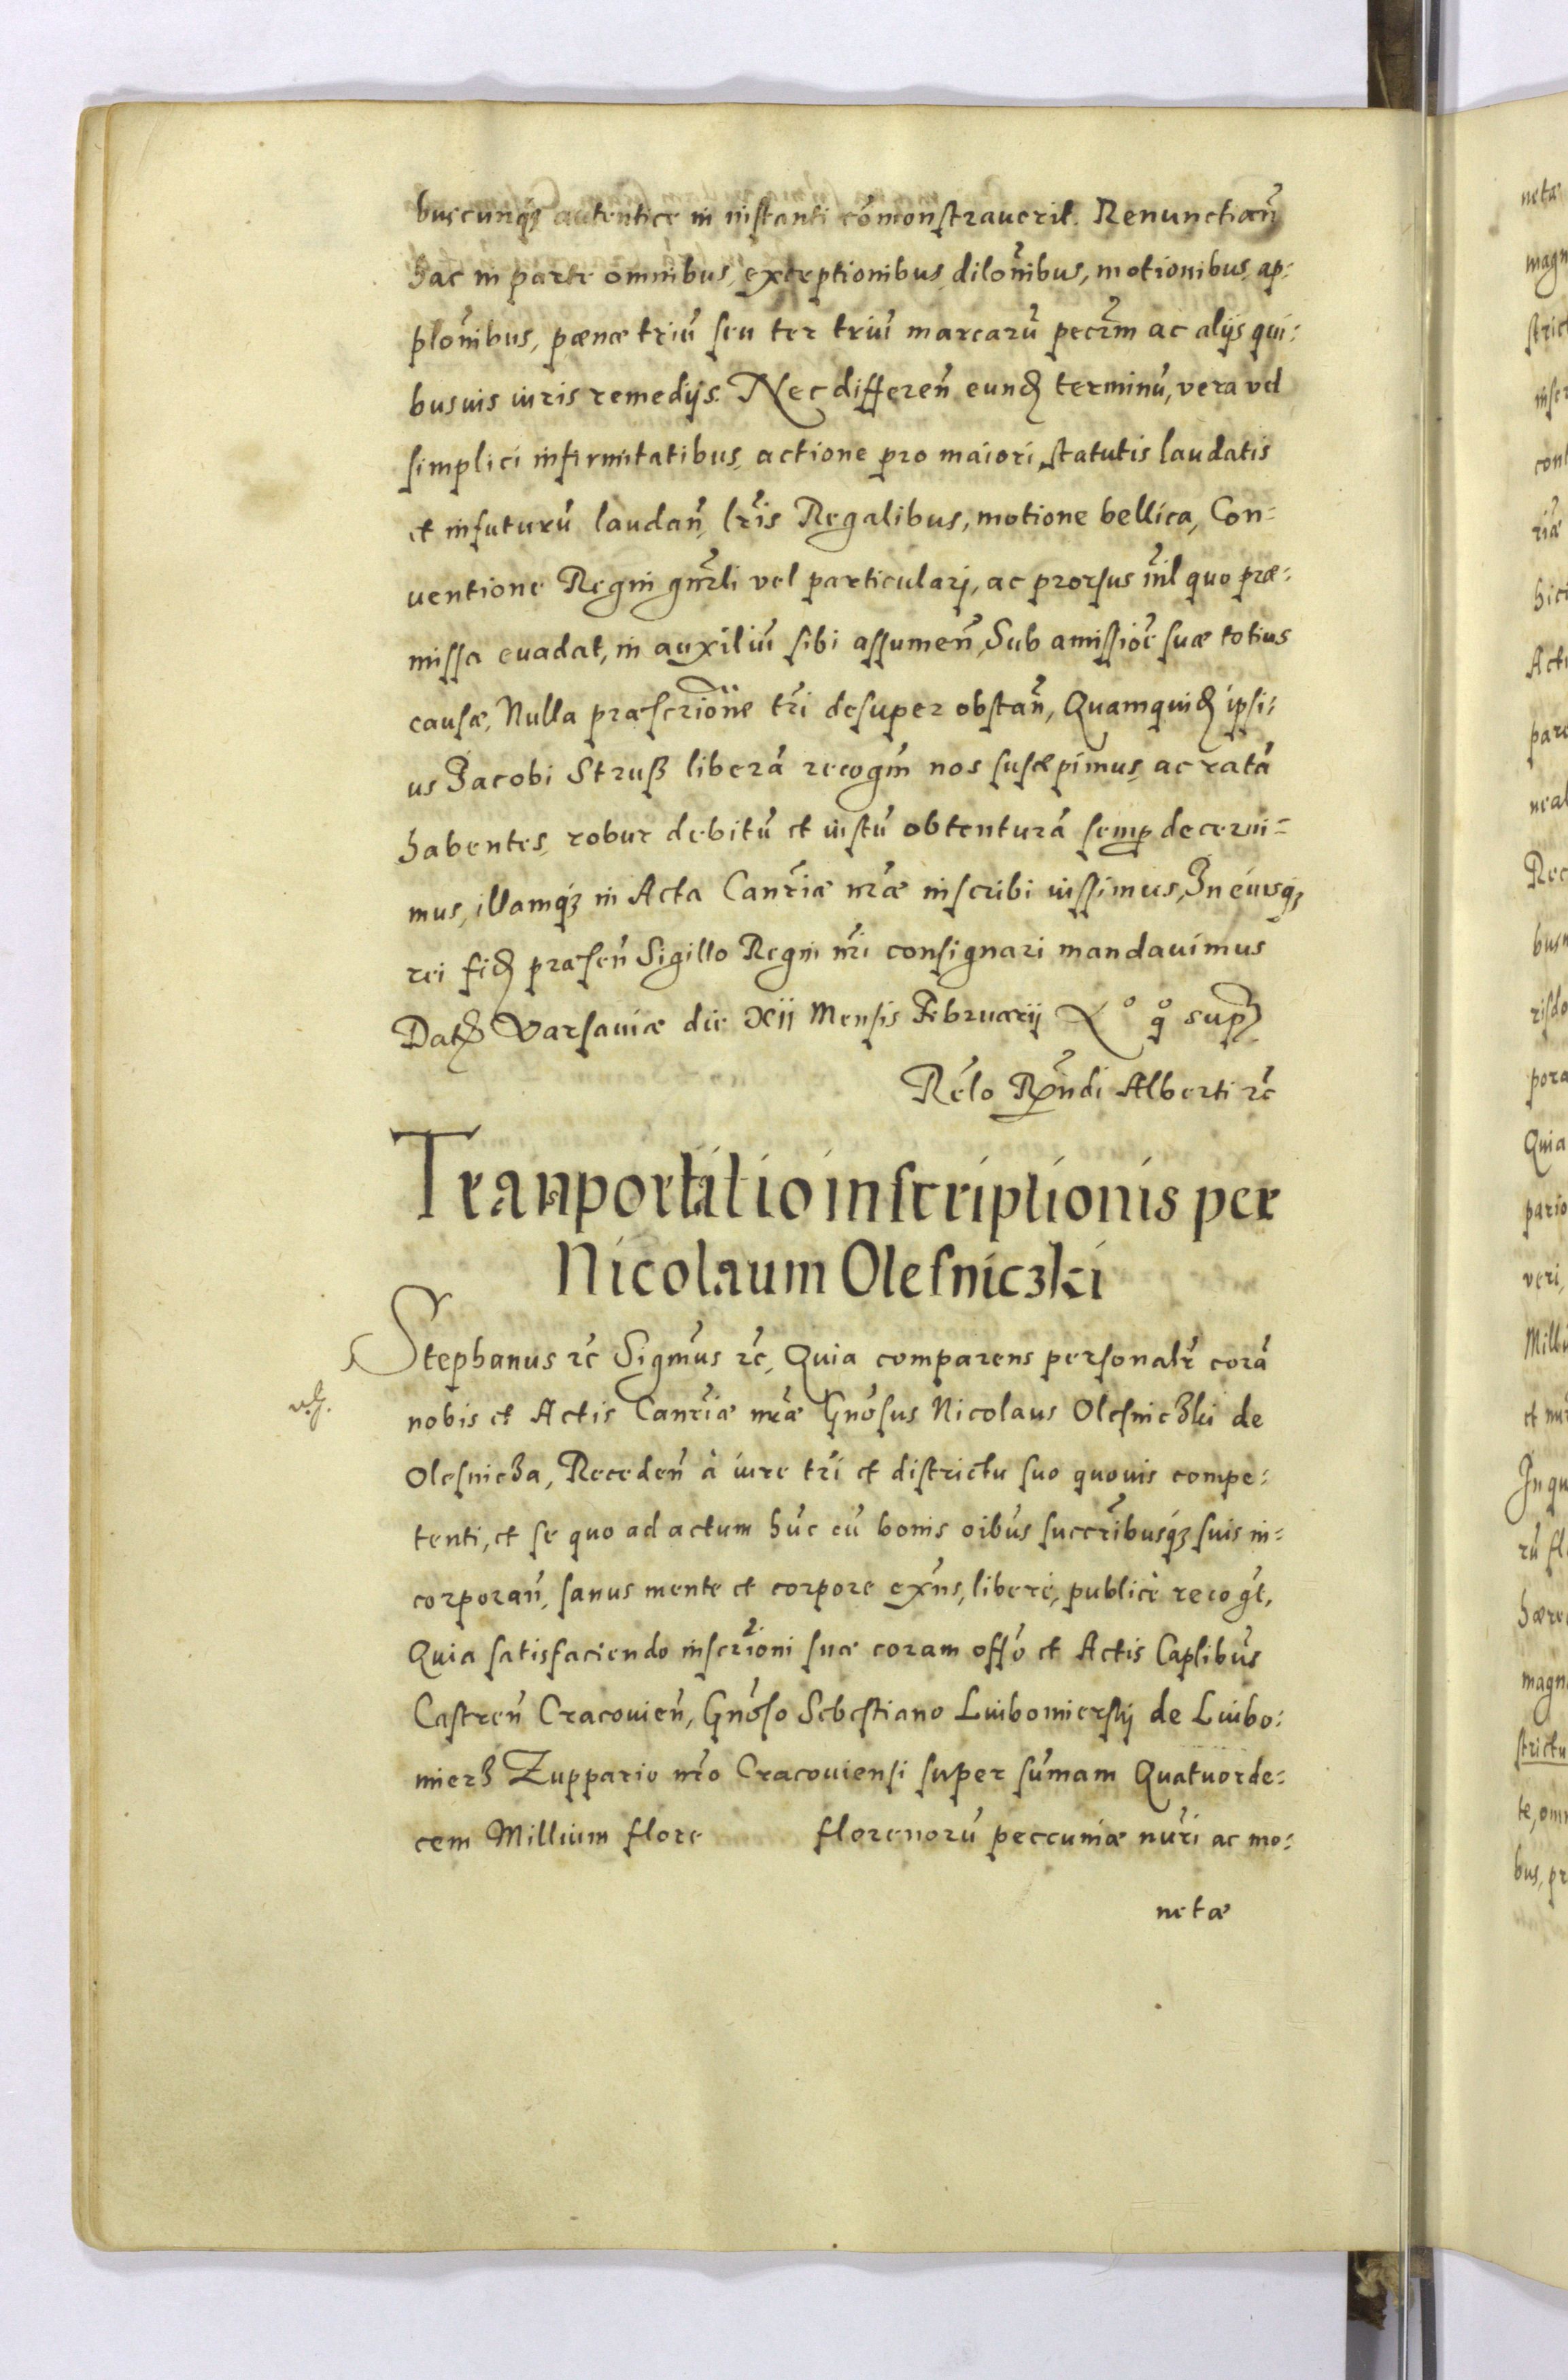 buscunq₃ autentice in instanti cõmonstraverit. Renunctiañ
hac in parte omnibus, exceptionibus dilõnibus, motionibus ap:
plõnibus, pænæ triũ seu ter triũ marcarũ pecr̃m ac alijs qui:
busuis iuris remedijs. Nec differeñ eunđ terminũ, vera vel
simplici infirmitatibus, actione pro maiori, statutis laudatis
et in futurũ laudañ, lr̃is Regalibus, motione bellica, Con=
uentione Regni gnr̃li vel particularj, ac prorsus nĩl quo præ:
missa euadat, in auxiliũ sibi assumeñ, Sub amissiõe suæ totius
causæ, Nulla præscriõne tr̃i desuper obstañ, Quamquidđ ipsi:
us Jacobi Struß liberã recogm̃ nos suscepimus, ac ratã
habentes, robur debitũ et iustũ obtenturã semꝑ decerni=
mus, illamq₃ in Acta Canr̃iæ nr̃æ inscribi iussimus, In cuiusq₃
rei fiđ præseñ Sigillo Regni nr̃i consignari mandauimus
Datđ Varsauiæ die Xii Mensis Februarij Lº qº supꝛ
Rẽlo Rx̃ndi Alberti ꝛc̃
Tranportatio inscriptionis per
Nicolaum Olesniczki
Stephanus ꝛc̃ Sigmũs ꝛc̃, Quia comparens personalr̃ corã
nobis et Actis Canr̃iæ nr̃æ Gnõsus Nicolaus Olesniczki de
Olesnicza, Recedeñ à iure tr̃i et districtu suo quouis compe:
tenti, et se quo ad actum hũc cũ bonis oĩbus succr̃ibusq₃ suis in=
corporañ, sanus mente et corpore ex̃ns, liberè, publicè recogt̃,
Quia satisfaciendo inscriõni suæ coram offõ et Actis Caplĩbus
Castreñ Cracouieñ, Gnõso Sebestiano Luibomierskj de Luibo:
mierz Zuppario nr̃o Cracouiensi super sũmam Quatuorde:
cem Millium flore florenorũ peccuniæ nũri ac mo:
netæ